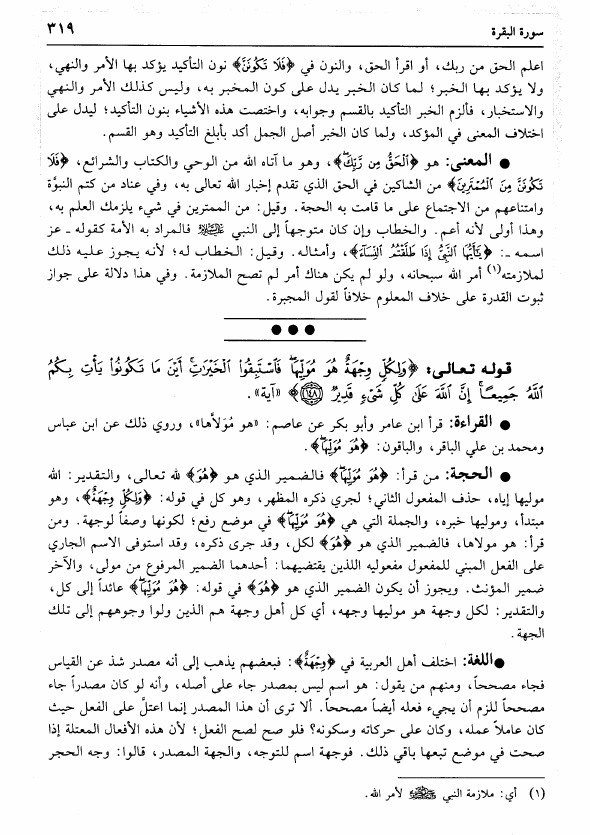 سورة البقرة ٣١٩
اعلم الحق من ربك، أو اقرأ الحق، والنون في ﴿فَلَا تَكُونَنَّ﴾ نون التأكيد يؤكد بها الأمر والنهي،
ولا يؤكد بها الخبر؛ لما كان الخبر يدل على كون المخبر به، وليس كذلك الأمر والنهي
والاستخبار، فألزم الخبر التأكيد بالقسم وجوابه، واختصت هذه الأشياء بنون التأكيد؛ ليدل على
اختلاف المعنى في المؤكد، ولما كان الخبر أصل الجمل أكد بأبلغ التأكيد وهو القسم.
● المعنى: هو ﴿الْحَقُّ مِن رَّبِّكَ﴾، وهو ما آتاه الله من الوحي والكتاب والشرائع، ﴿فَلَا
تَكُونَنَّ مِنَ الْمُمْتَرِينَ﴾ من الشاكين في الحق الذي تقدم إخبار الله تعالى به، وفي عناد من كتم النبوَّة
وامتناعهم من الاجتماع على ما قامت به الحجة. وقيل: من الممترين في شيء يلزمك العلم به،
وهذا أولى لأنه أعم. والخطاب وإن كان متوجهاً إلى النبي ﷺ فالمراد به الأمة كقوله ـ عز
اسمه ـ: ﴿يَٰٓأَيُّهَا النَّبِيُّ إِذَا طَلَّقْتُمُ النِّسَآءَ﴾، وأمثاله. وقيل: الخطاب له؛ لأنه يجوز عليه ذلك
لملازمته(١) أمر الله سبحانه، ولو لم يكن هناك أمر لم تصح الملازمة. وفي هذا دلالة على جواز
ثبوت القدرة على خلاف المعلوم خلافاً لقول المجبرة.
● ● ●
قوله تعالى: ﴿وَلِكُلٍّ وِجْهَةٌ هُوَ مُوَلِّيهَا فَاسْتَبِقُوا الْخَيْرَٰتِ أَيْنَ مَا تَكُونُوا يَأْتِ بِكُمُ
اللَّهُ جَمِيعًا إِنَّ اللَّهَ عَلَىٰ كُلِّ شَيْءٍ قَدِيرٌ ١٤٨﴾ «آية».
● القراءة: قرأ ابن عامر وأبو بكر عن عاصم: «هو مُوَلاها»، وروي ذلك عن ابن عباس
ومحمد بن علي الباقر، والباقون: ﴿هُوَ مُوَلِّيهَا﴾.
● الحجة: من قرأ: ﴿هُوَ مُوَلِّيهَا﴾ فالضمير الذي هو ﴿هُوَ﴾ لله تعالى، والتقدير: الله
موليها إياه، حذف المفعول الثاني؛ لجري ذكره المظهر، وهو كل في قوله: ﴿وَلِكُلٍّ وِجْهَةٌ﴾، وهو
مبتدأ، وموليها خبره، والجملة التي هي ﴿هُوَ مُوَلِّيهَا﴾ في موضع رفع؛ لكونها وصفاً لوجهة. ومن
قرأ: هو مولاها، فالضمير الذي هو ﴿هُوَ﴾ لكل، وقد جرى ذكره، وقد استوفى الاسم الجاري
على الفعل المبني للمفعول مفعوليه اللذين يقتضيهما: أحدهما الضمير المرفوع من مولى، والآخر
ضمير المؤنث. ويجوز أن يكون الضمير الذي هو ﴿هُوَ﴾ في قوله: ﴿هُوَ مُوَلِّيهَا﴾ عائداً إلى كل،
والتقدير: لكل وجهة هو موليها وجهه، أي كل أهل وجهة هم الذين ولوا وجوههم إلى تلك
الجهة.
●اللغة: اختلف أهل العربية في ﴿وِجْهَةٌ﴾: فبعضهم يذهب إلى أنه مصدر شذ عن القياس
فجاء مصححاً، ومنهم من يقول: هو اسم ليس بمصدر جاء على أصله، وأنه لو كان مصدراً جاء
مصححاً للزم أن يجيء فعله أيضاً مصححاً. ألا ترى أن هذا المصدر إنما اعتلَّ على الفعل حيث
كان عاملاً عمله، وكان على حركاته وسكونه؟ فلو صح لصح الفعل؛ لأن هذه الأفعال المعتلة إذا
صحت في موضع تبعها باقي ذلك. فوجهة اسم للتوجه، والجهة المصدر، قالوا: وجه الحجر
(١) أي: ملازمة النبي ﷺ لأمر الله.